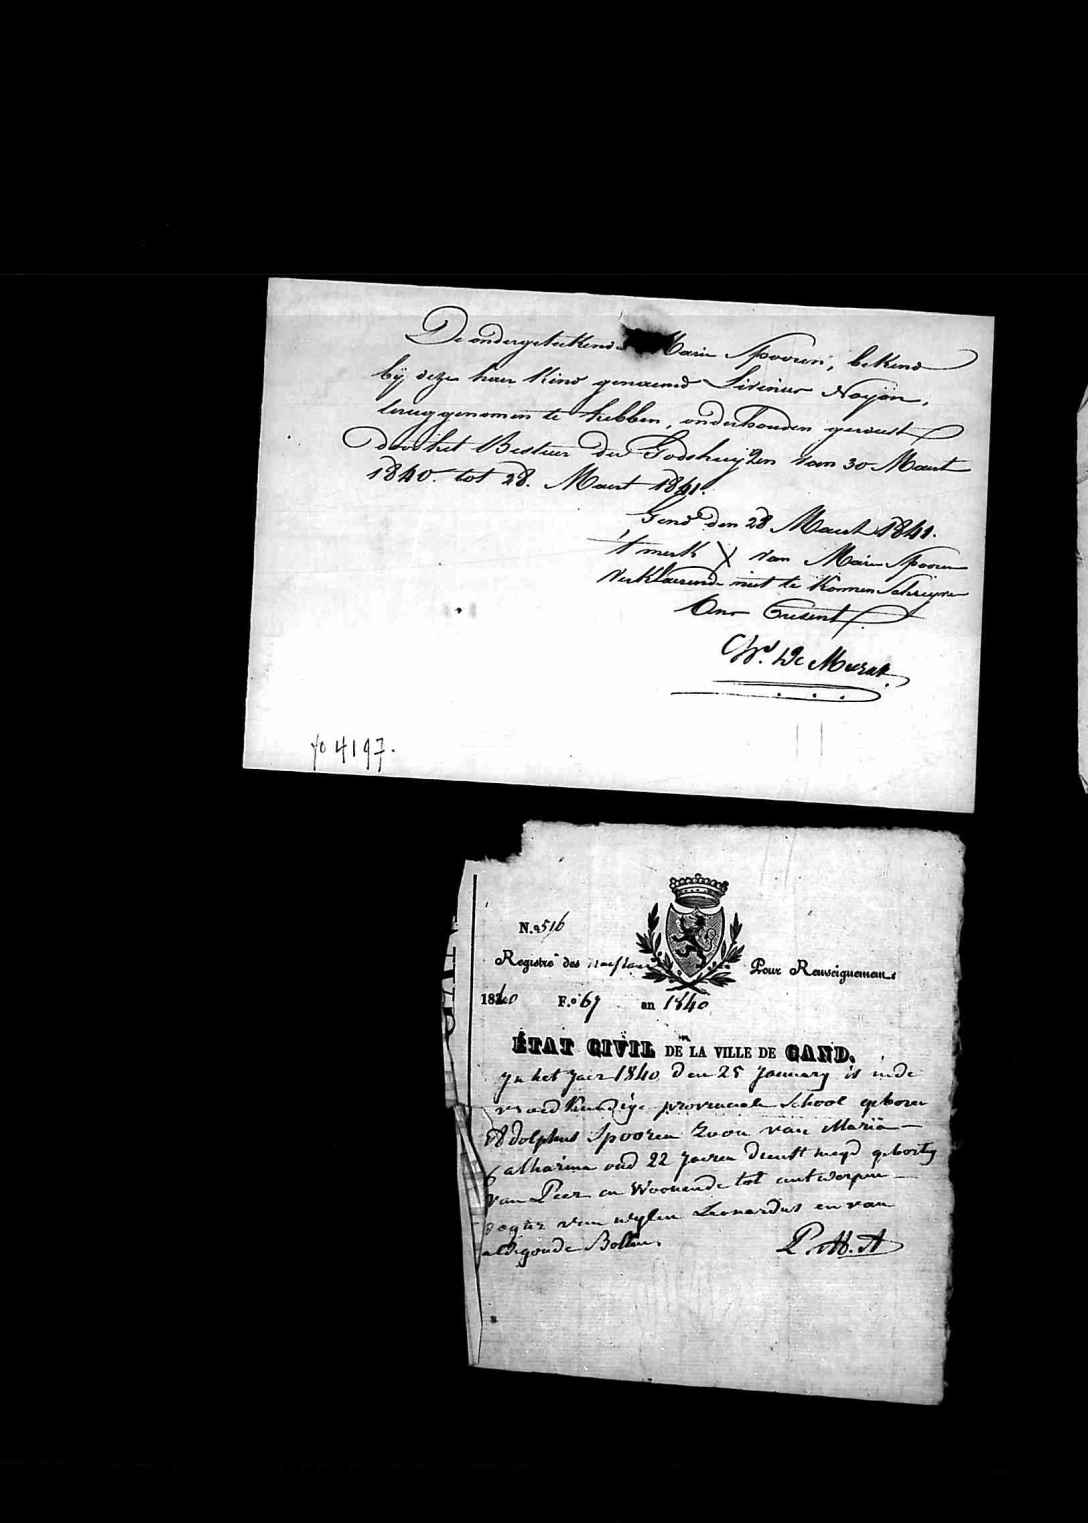 De ondergeteekende Marie Spooren, bekend
bij deze haer Kind genaemd Livinus Noyon,
teruggenomen te hebben, onderhouden geweest
door het Bestuer der Godshuyzen van 30 Maert
1840. tot 28. Maert 1841.
Gend den 28 Maert 1841.
't merk X van Marie Spooren
verklaerende niet te konnen Schryven
Ons Present
De Meerst
fo 4197.
N.º 516
Registre des Pour Renseignemens
1840 F.º 67 an 1840
ÉTAT CIVIL DE LA VILLE DE GAND.
In het Jaer 1840 den 25 January is in de
vroedkundige provinciale School geboren
Adolphus Spooren Zoon van Maria
Catharina oud 22 Jaeren dienstmeyd geboortig
van Peer en Woonende tot antwerpen
dogter van wylen Leonardus en van
aldegonde Bollen.